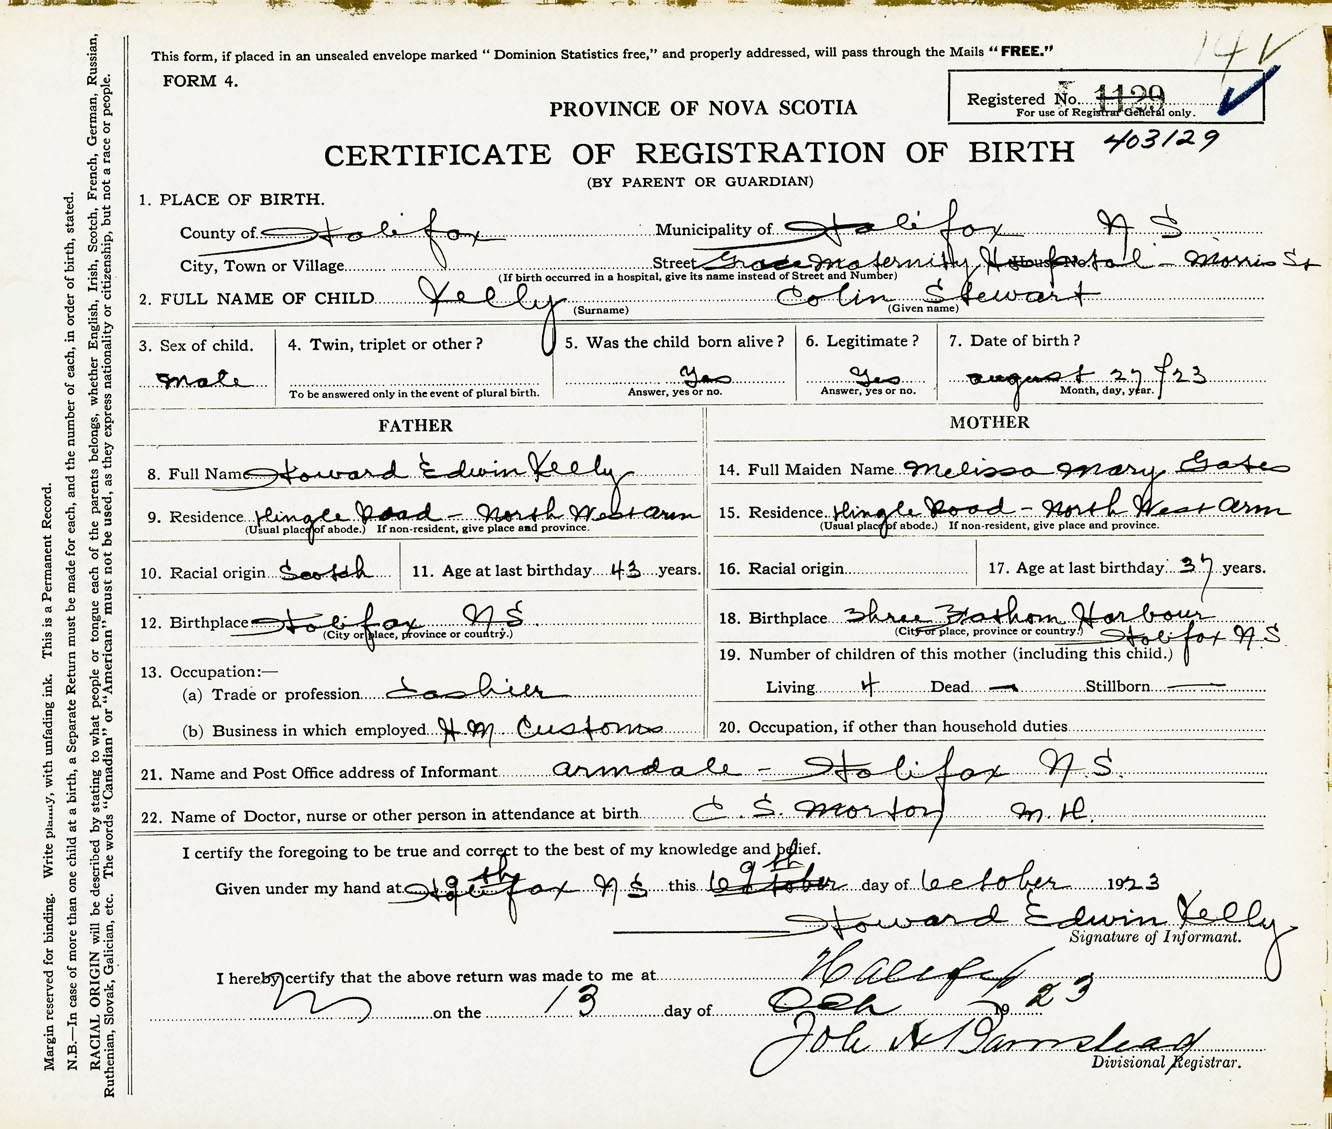 This form, if placed in an unsealed envelope marked “ Dominion Statistics free,” and properly addressed, will pass through the Mails “FREE.”
14 V
FORM 4.
PROVINCE OF NOVA SCOTIA
Registered No. 1129
For use of Registrar General only.
403129
CERTIFICATE OF REGISTRATION OF BIRTH
(BY PARENT OR GUARDIAN)
1. PLACE OF BIRTH.
County of Halifax Municipality of Halifax N S
City, Town or Village Street Grace Maternity Hospital - Morris St
(If birth occurred in a hospital, give its name instead of Street and Number)
2. FULL NAME OF CHILD Kelly Colin Stewart
(Surname) (Given name)
3. Sex of child. 4. Twin, triplet or other ? 5. Was the child born alive ? 6. Legitimate ? 7. Date of birth ?
Male Yes Yes August 27/23
To be answered only in the event of plural birth. Answer, yes or no. Answer, yes or no. Month, day, year.
FATHER MOTHER
8. Full Name Howard Edwin Kelly 14. Full Maiden Name Melissa Mary Gates
9. Residence Hingle Road - North West Arm 15. Residence Hingle Road - North West Arm
(Usual place of abode.) If non-resident, give place and province. (Usual place of abode.) If non-resident, give place and province.
10. Racial origin Scotch 11. Age at last birthday 43 years. 16. Racial origin 17. Age at last birthday 37 years.
12. Birthplace Halifax N S 18. Birthplace Three Fathom Harbour
(City or place, province or country.) (City or place, province or country.) Halifax N.S.
13. Occupation:— 19. Number of children of this mother (including this child.)
(a) Trade or profession Cashier Living 4 Dead — Stillborn —
(b) Business in which employed H M Customs 20. Occupation, if other than household duties
21. Name and Post Office address of Informant Armdale - Halifax N.S.
22. Name of Doctor, nurse or other person in attendance at birth C. S. Morton M.D.
I certify the foregoing to be true and correct to the best of my knowledge and belief.
9th 9th
Given under my hand at Halifax N S this October day of October 1923
Howard Edwin Kelly
Signature of Informant.
I hereby certify that the above return was made to me at Halifax
on the 13 day of Oct 1923
John A Barnstead
Divisional Registrar.
Margin reserved for binding. Write plainly, with unfading ink. This is a Permanent Record.
N.B.—In case of more than one child at a birth, a Separate Return must be made for each, and the number of each, in order of birth, stated.
RACIAL ORIGIN will be described by stating to what people or tongue each of the parents belongs, whether English, Irish, Scotch, French, German, Russian,
Ruthenian, Slovak, Galician, etc. The words “Canadian” or “American” must not be used, as they express nationality or citizenship, but not a race or people.